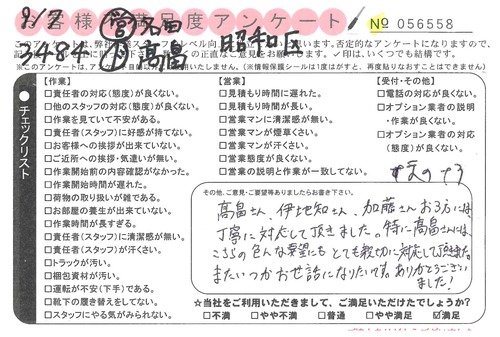 お客様満足度アンケート
No 056558
9/7 営 名西
3484 月 高畠 昭和区
(※情報保護シールは1度はがすと、再度貼りなおすことはできません)
チェックリスト
【作業】
□責任者の対応(態度)が良くない。
□他のスタッフの対応(態度)が良くない。
□作業を見ていて不安がある。
□責任者(スタッフ)に好感が持てない。
□お客様への挨拶が出来ていない。
□ご近所への挨拶・気遣いが無い。
□作業開始前の内容確認がなかった。
□作業開始時間が遅れた。
□荷物の取り扱いが雑である。
□お部屋の養生が出来ていない。
□作業時間が長すぎる。
□責任者(スタッフ)に清潔感が無い。
□責任者(スタッフ)が汗くさい。
□トラックが汚い。
□梱包資材が汚い。
□運転が不安(下手)である。
□靴下の履き替えをしてない。
□スタッフにやる気がみられない。
【営業】
□見積もり時間に遅れた。
□見積もり時間が長い。
□営業マンに清潔感が無い。
□営業マンが煙草くさい。
□営業マンが汗くさい。
□営業態度が良くない。
□営業の説明と作業が一致してない。
【受付・その他】
□電話の対応が良くない。
□オプション業者の説明
・作業が良くない。
□オプション業者の対応
(態度)が良くない。
その他、ご意見・ご要望等ありましたらお書き下さい。
高畠さん、伊地知さん、加藤さんお3方には
丁寧に対応して頂きました。特に高畠さんには、
こちらの色んな要望にもとても親切に対応して頂きました。
またいつかお世話になりたいです。ありがとうござい
ました!
☆当社をご利用いただきまして、ご満足いただけたでしょうか?
□不満 □やや不満 □普通 □やや満足 ☑満足